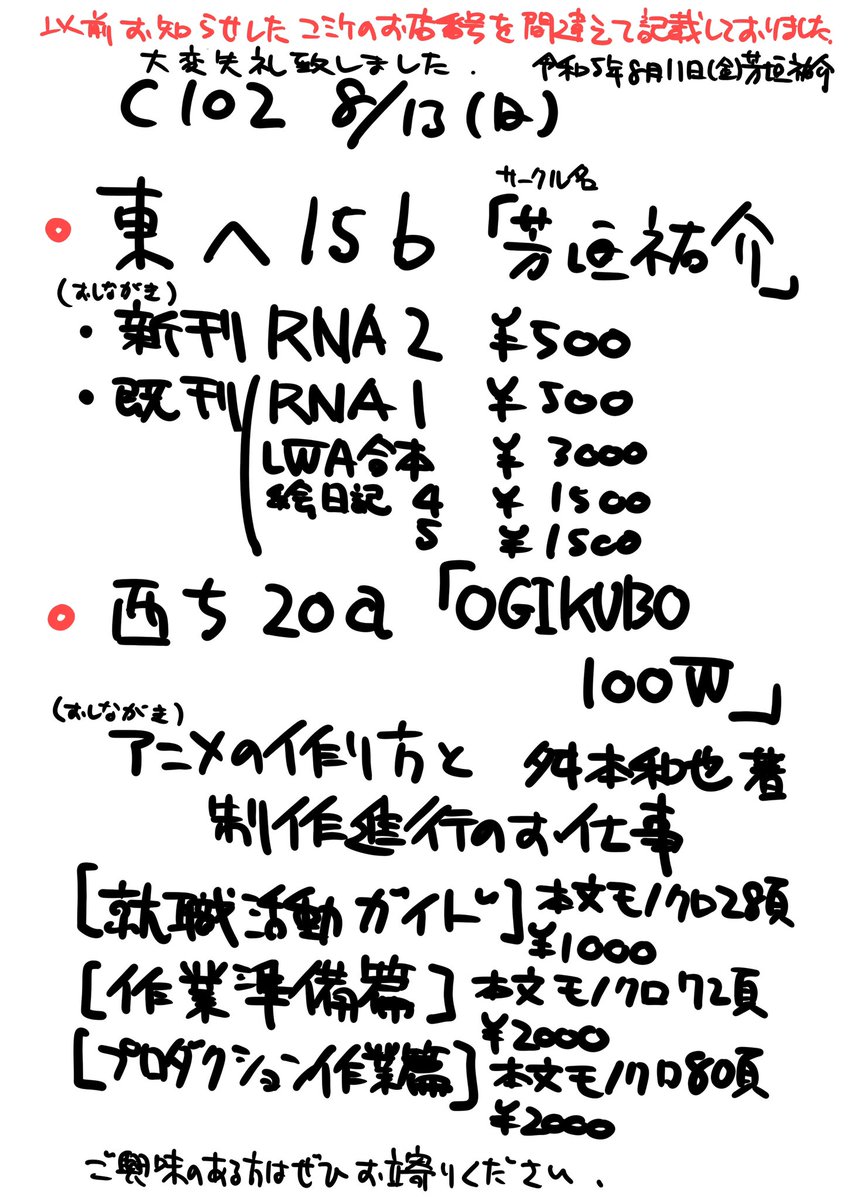 以前お知らせしたコミケのお店番号を間違えて記載しておりました.
大変失礼致しました. 令和5年8月11日(金)芳垣祐介
C102 8/13(日)
サークル名
東へ15b「芳垣祐介」
(おしながき)
・新刊 RNA2 ¥500
・既刊 RNA1 ¥500
LWA合本 ¥3000
絵日記 4 ¥1500
5 ¥1500
西ち20a「OGIKUBO
100W」
(おしながき)
アニメの作り方と 舛本和也 著
制作進行のお仕事
[就職活動ガイド]本文モノクロ28項
¥1000
[作業準備篇]本文モノクロ72項
¥2000
[プロダクション作業篇]本文モノクロ80項
¥2000
ご興味のある方はぜひお立寄りください.